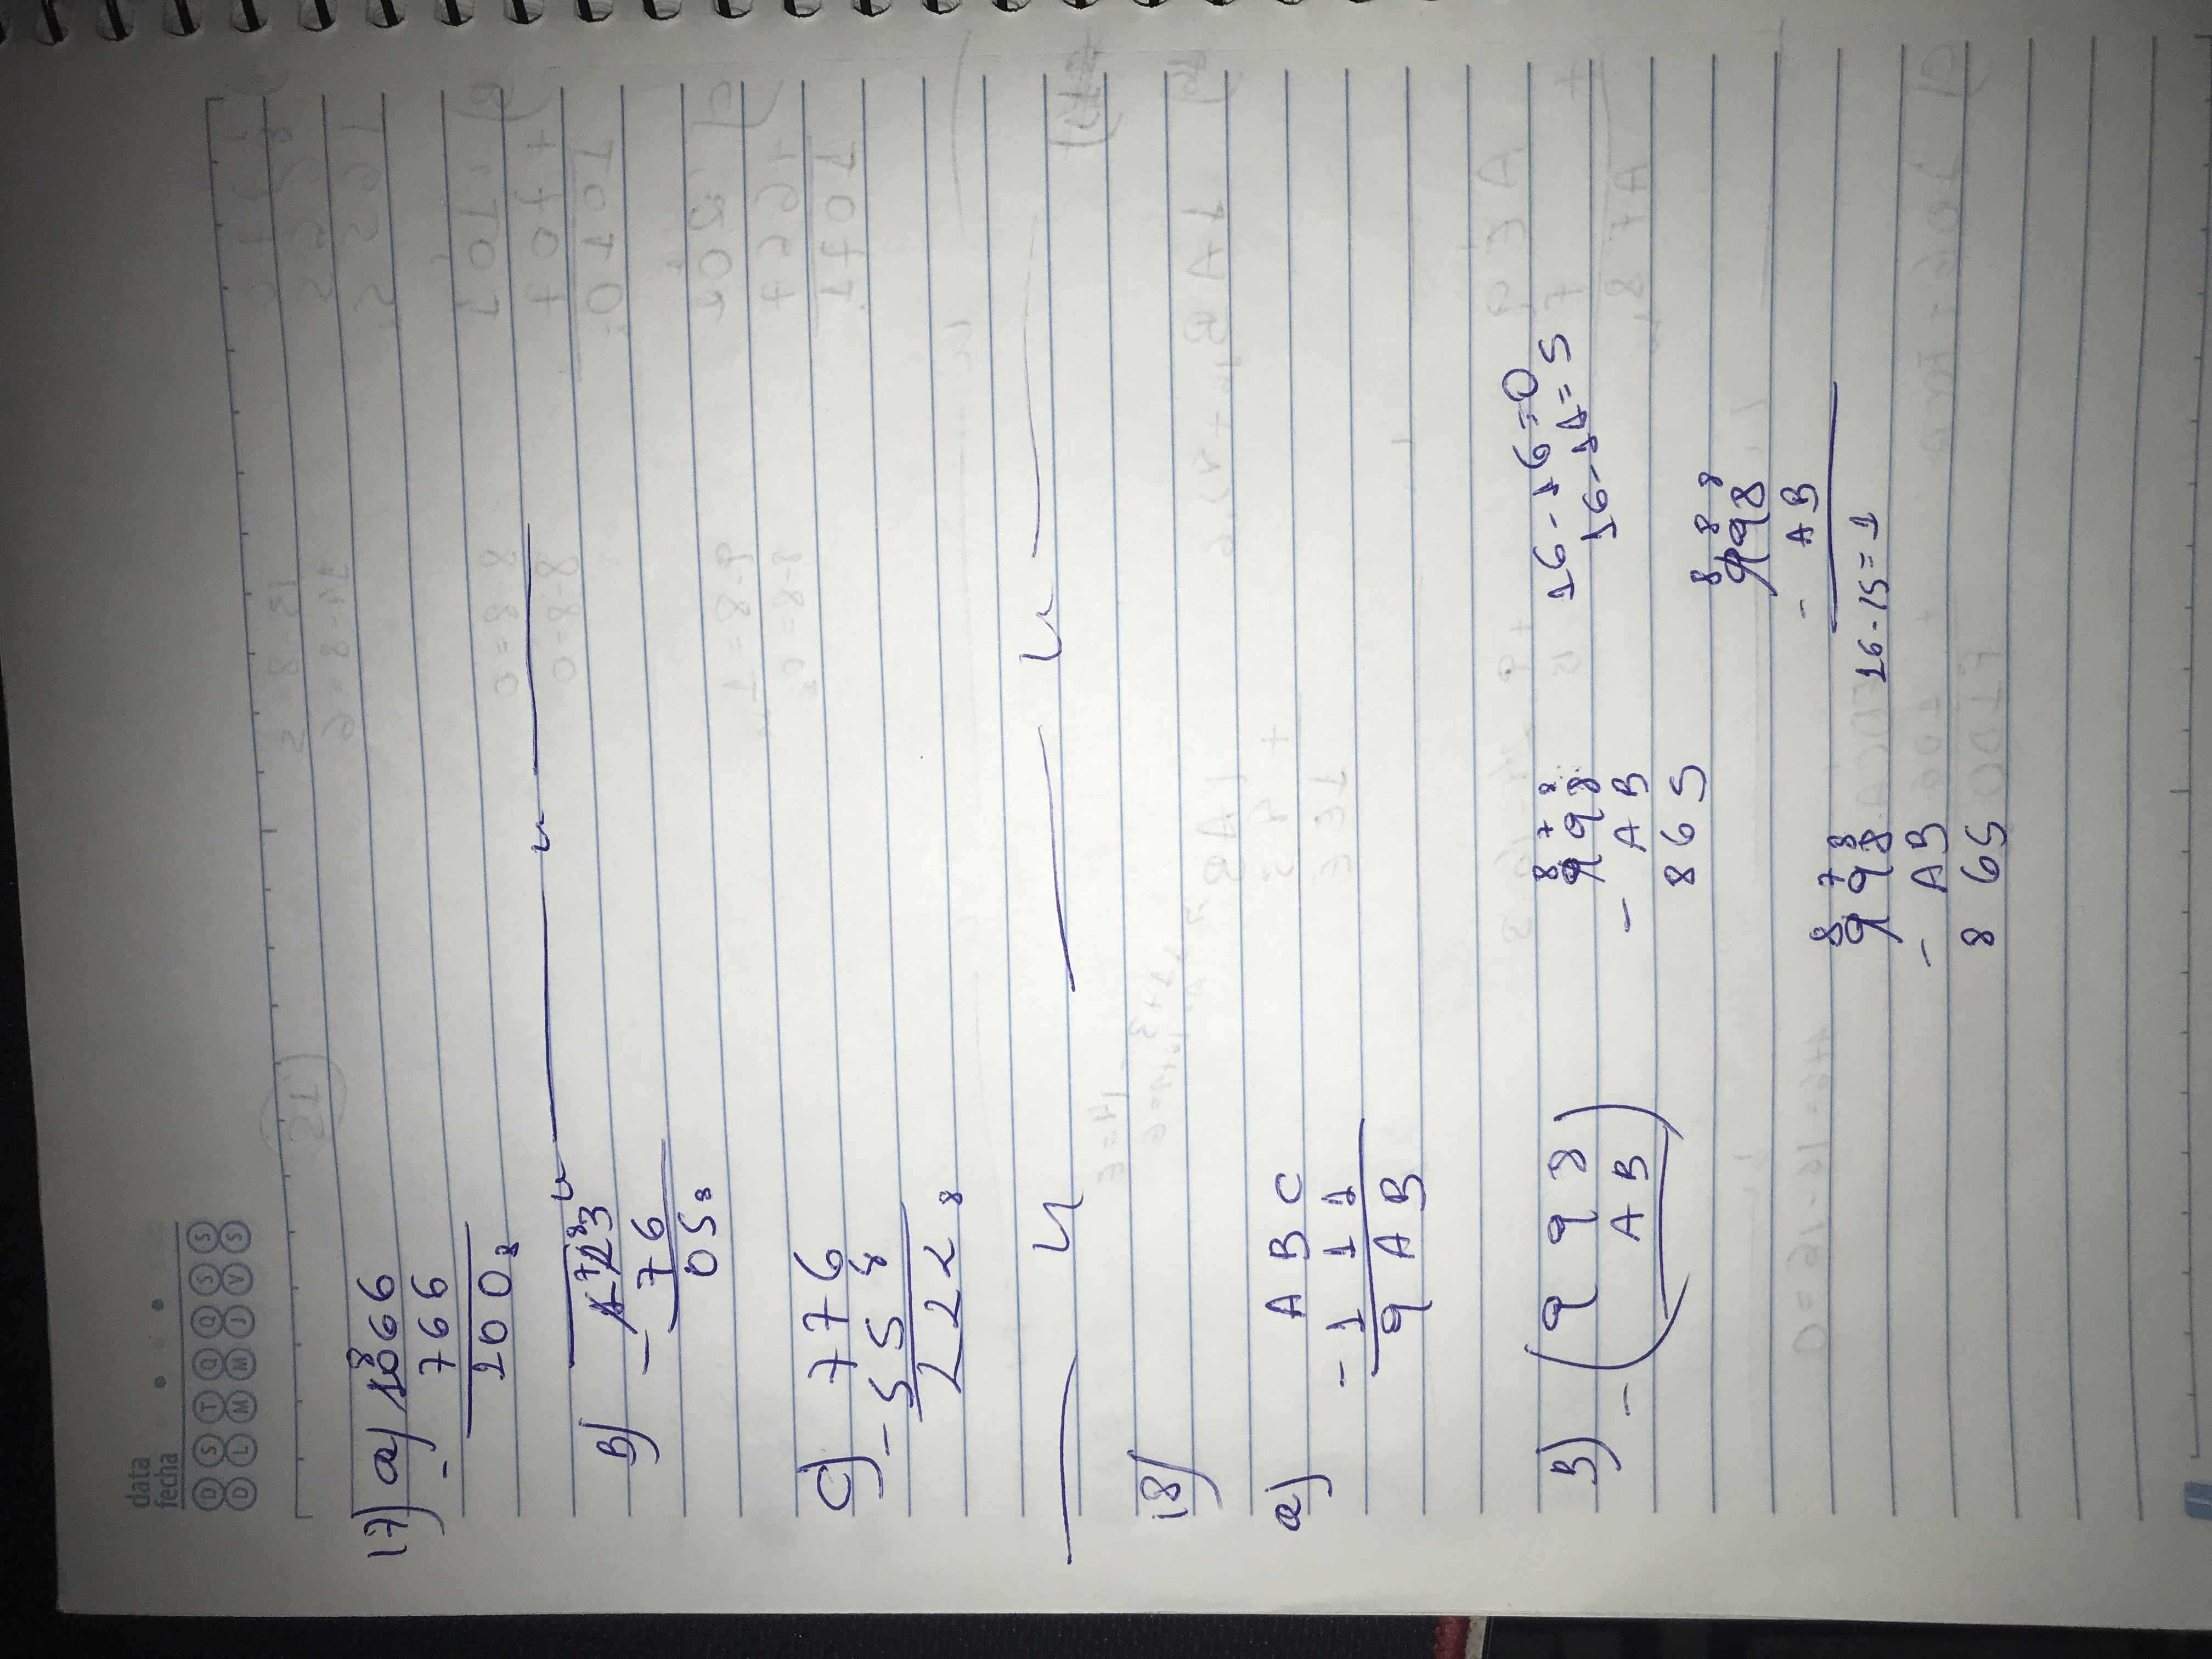 data
fecha
D S T Q Q S S
D L M M J V S
17) a) 1066
8
- 766
100₈
B) 123
7 8
- 76
05₈
C) 776
- 558
222₈
18)
a) A B C
- 1 1 1
9 A B
B) - ( 9 9 8
A B )
8 7 8
9 9 8
- A B
8 6 5
16-16=0
16-11=5
8 8 8
998
- AB
16-15=1
8 7 8
9 9 8
- AB
8 65